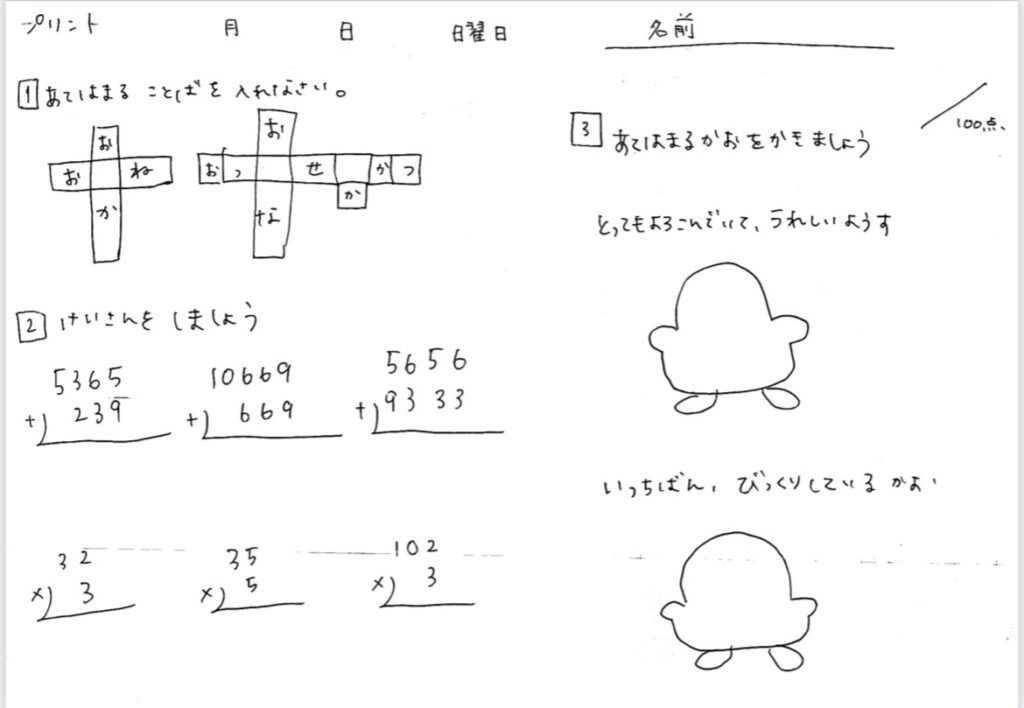 プリント 月 日 日曜日 名前
1 あてはまる ことばを 入れなさい。
お
お ね
か
お
おっ せ かつ
か
な
2 けいさんを しましょう
5365
+ 239
10669
+ 669
5656
+ 9333
32
× 3
35
× 5
102
× 3
/100点
3 あてはまるかおをかきましょう
とってもよろこんでいて、うれしいようす
いっちばん、びっくりしているかお